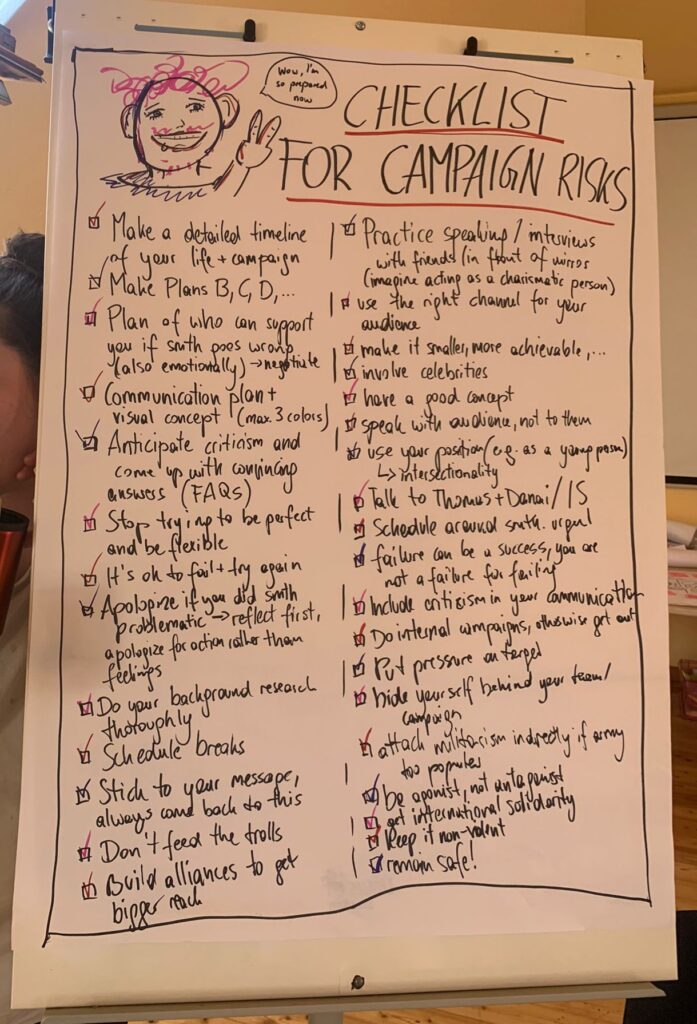 Wow, I'm
so prepared
now
CHECKLIST
FOR CAMPAIGN RISKS
Make a detailed timeline
of your life + campaign
Make Plans B, C, D, ...
Plan of who can support
you if smth goes wrong
(also emotionally) → negotiate
Communication plan +
visual concept (max. 3 colors)
Anticipate criticism and
come up with convincing
answers (FAQs)
Stop trying to be perfect
and be flexible
It's ok to fail + try again
Apologize if you did smth
problematic → reflect first,
apologize for action rather than
feelings
Do your background research
thoroughly
Schedule breaks
Stick to your message,
always come back to this
Don't feed the trolls
Build alliances to get
bigger reach
Practice speaking / interviews
with friends / in front of mirror
(imagine acting as a charismatic person)
use the right channel for your
audience
make it smaller, more achievable, ...
involve celebrities
have a good concept
speak with audience, not to them
use your position (e.g. as a young person)
↳ intersectionality
Talk to Thomas + Danai / IS
Schedule around smth. urgent
failure can be a success, you are
not a failure for failing
Include criticism in your communication
Do internal campaigns, otherwise get out
Put pressure on target
hide yourself behind your team /
campaign
attack militarism indirectly if army
too popular
be agonist, not antagonist
get international solidarity
Keep it non-violent
remain safe!